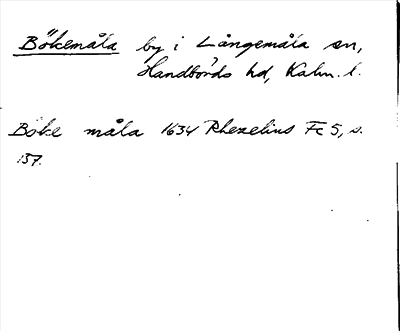 Bökemåla by i Långemåla sn,
Handbörds hd, Kalm. l.
Böke måla 1634 Rhezelius Fc 5, s.
157.